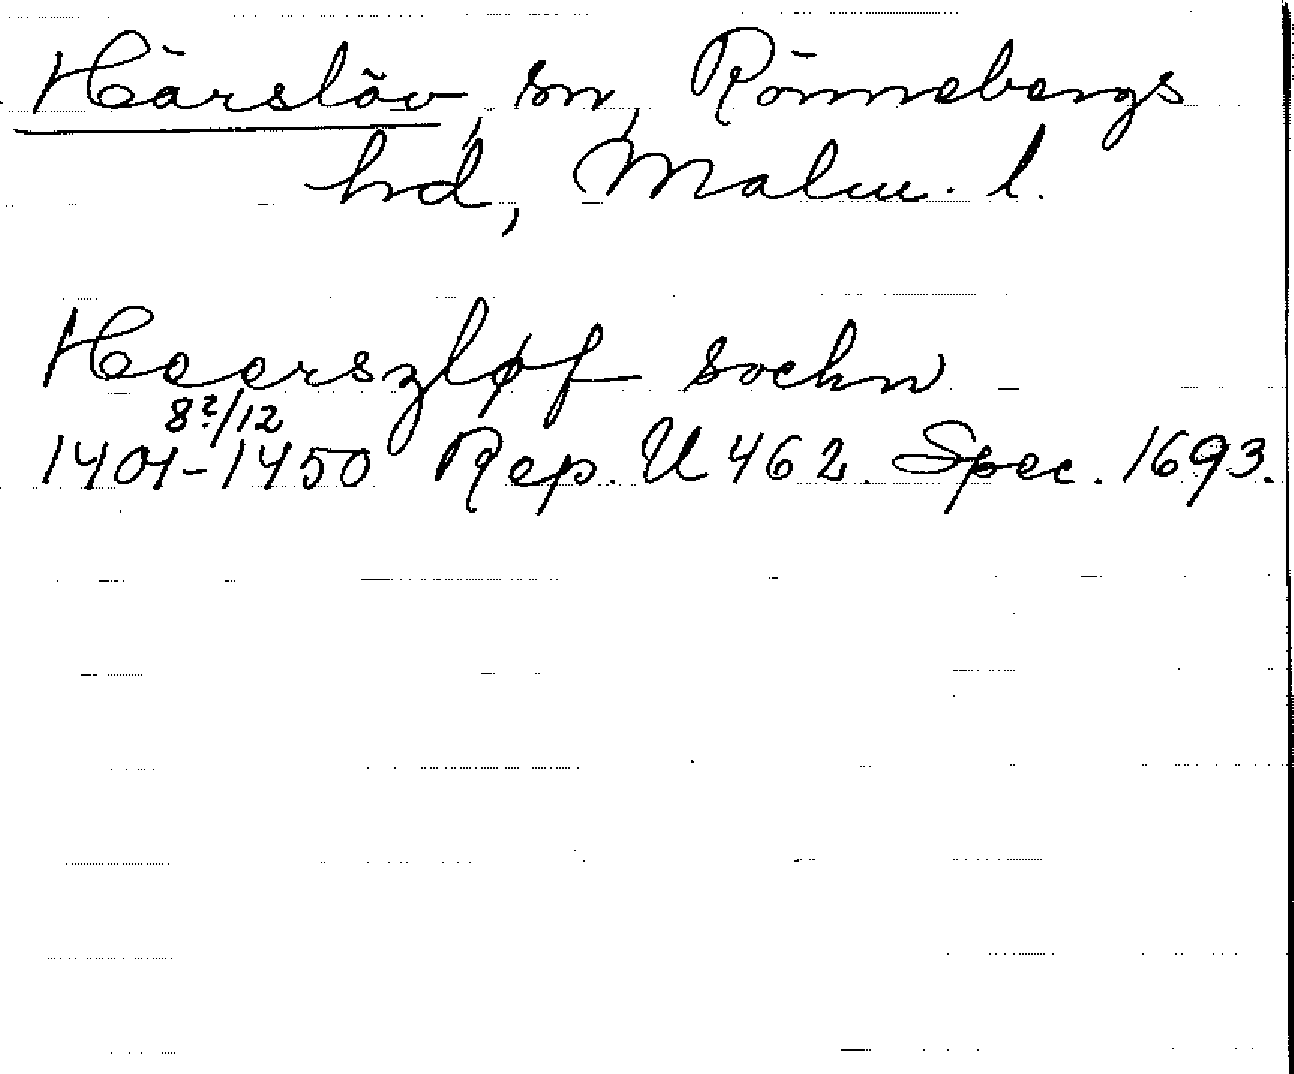 Härslöv, sn, Rönnebergs
hd, Malm. l.
Heerszløf sochn
8?/12
1401-1450 Rep. U 462. Spec. 1693.